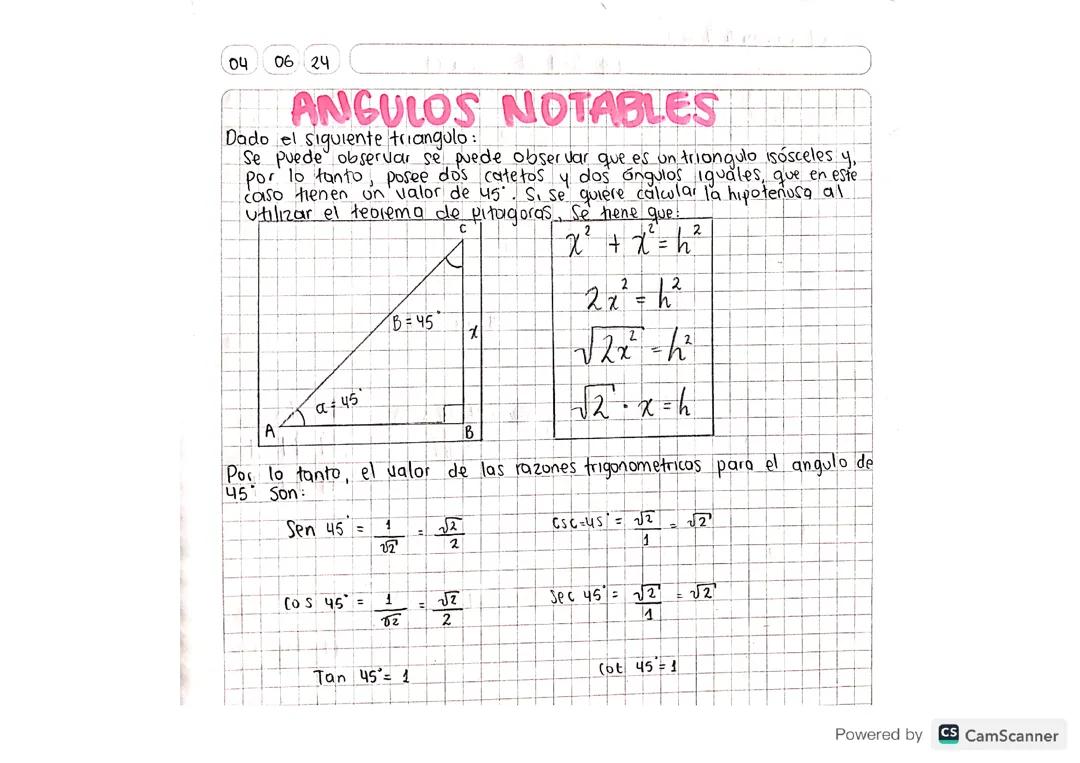 04 06 24
ANGULOS NOTABLES
Dado el siguiente triangulo:
Se puede observar se puede observar que es un triangulo isósceles y,
por lo tanto, posee dos catetos y dos ángulos iguales, que en este
caso tienen un valor de 45°. Si se quiere calcular la hipotenusa al
utilizar el teorema de pitagoras, se tiene que:
C
B=45°
x
a=45°
A
B
x² + x² = h²
2x² = h²
√2x² = h²
√2 · x = h
Por lo tanto, el valor de las razones trigonometricas para el angulo de
45° son:
Sen 45° = 1/√2 = √2/2
Csc=45° = √2/1 = √2
Cos 45° = 1/√2 = √2/2
Sec 45° = √2/1 = √2
Tan 45° = 1
Cot 45° = 1
Powered by CS CamScanner